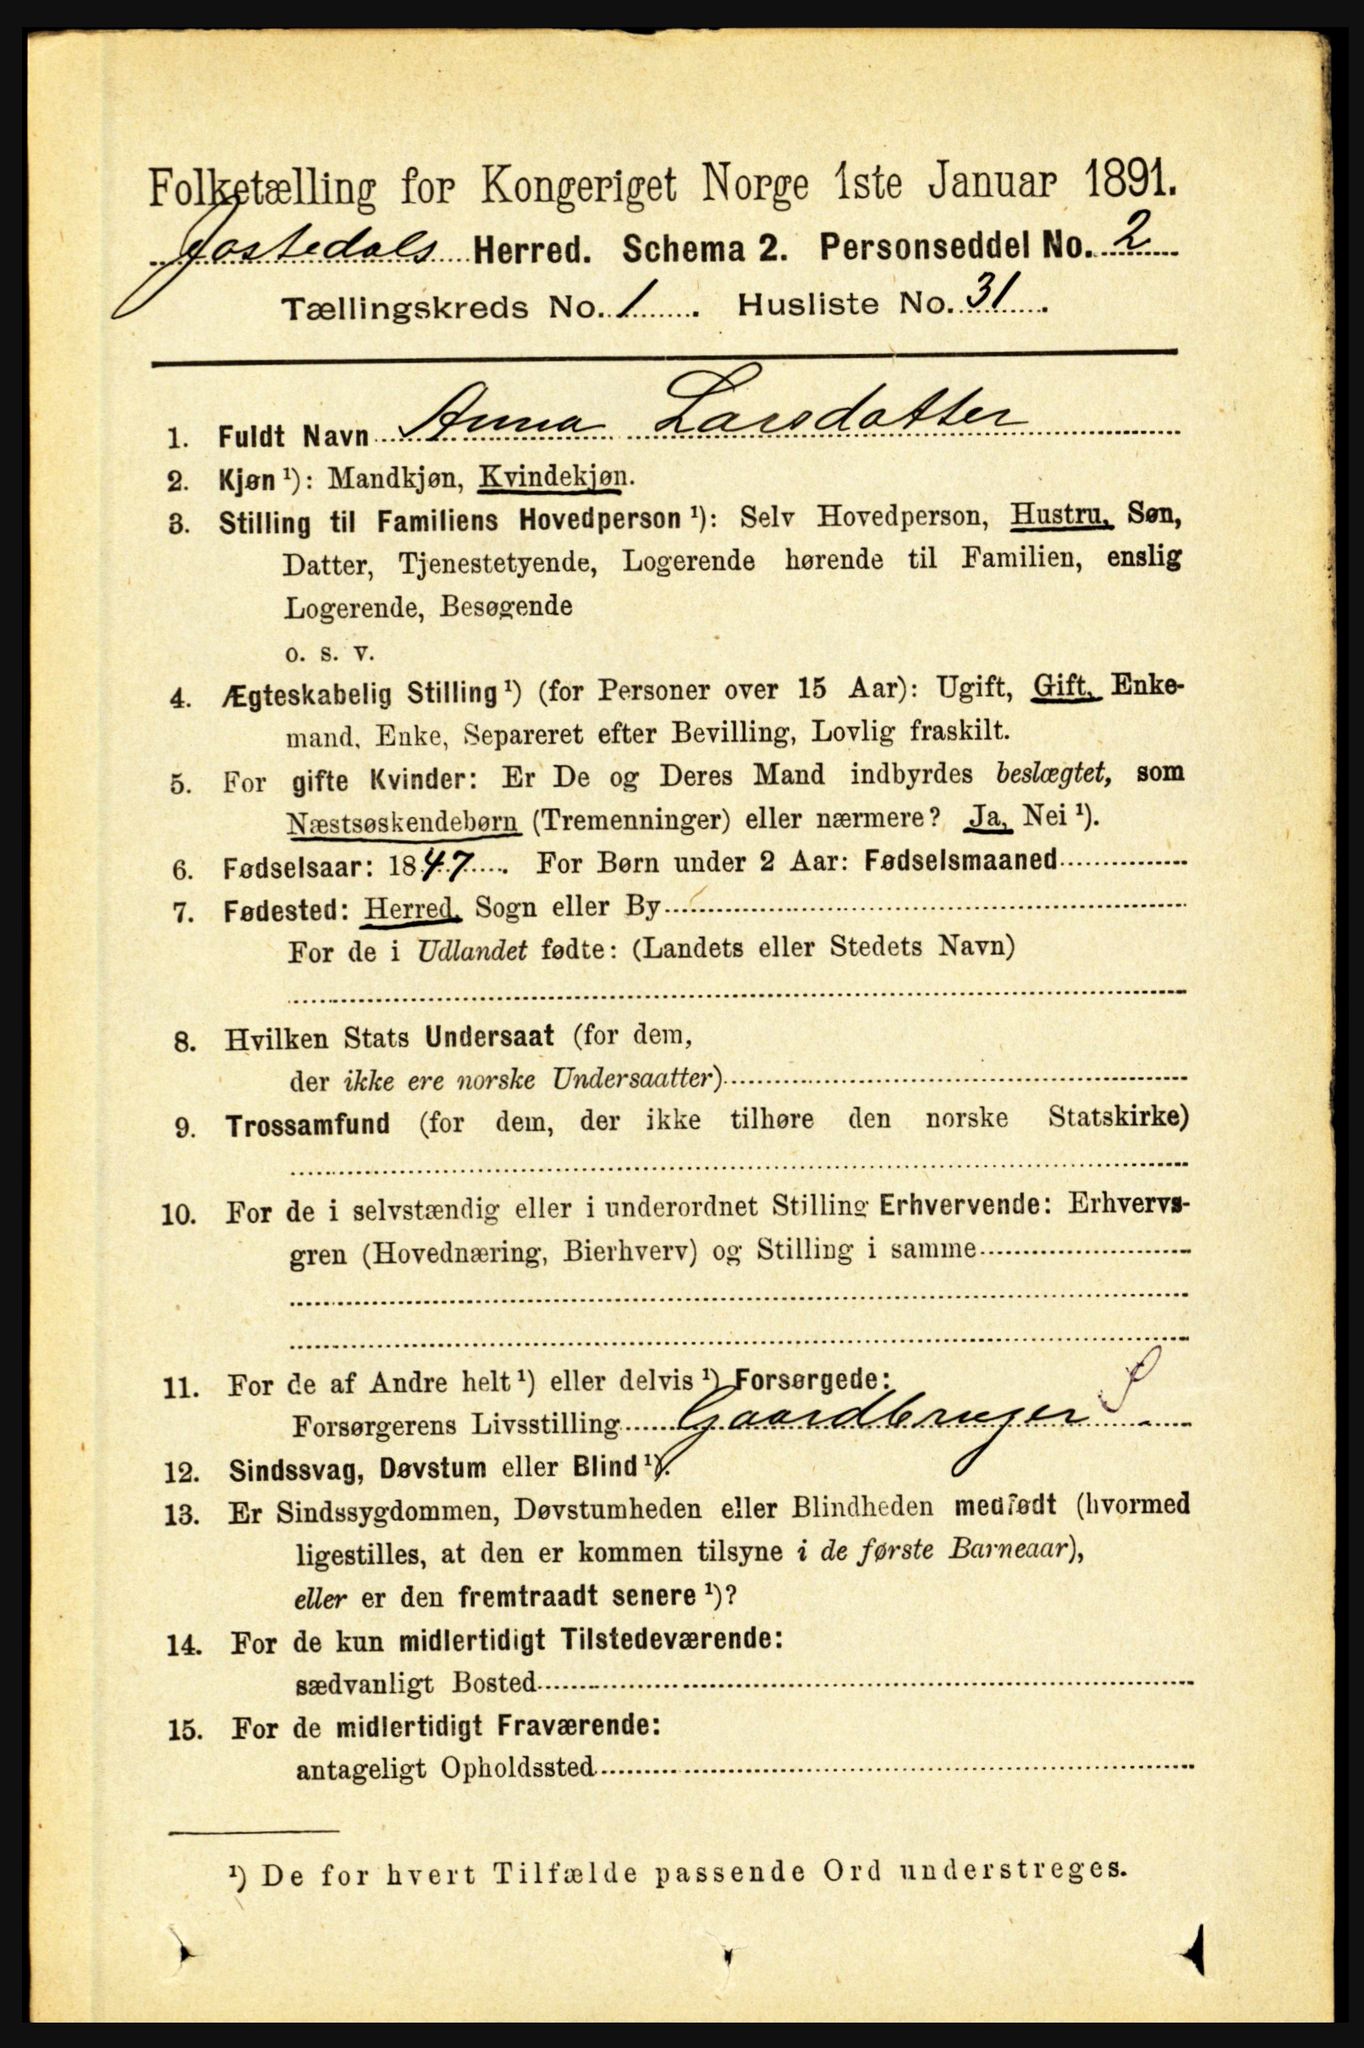 Folketælling for Kongeriget Norge 1ste Januar 1891.
Jostedals Herred. Schema 2. Personseddel No. 2
Tællingskreds No. 1. Husliste No. 31.
1. Fuldt Navn Anna Larsdatter
2. Kjøn ¹): Mandkjøn, Kvindekjøn.
3. Stilling til Familiens Hovedperson ¹): Selv Hovedperson, Hustru, Søn,
Datter, Tjenestetyende, Logerende hørende til Familien, enslig
Logerende, Besøgende
o. s. v.
4. Ægteskabelig Stilling ¹) (for Personer over 15 Aar): Ugift, Gift, Enke-
mand, Enke, Separeret efter Bevilling, Lovlig fraskilt.
5. For gifte Kvinder: Er De og Deres Mand indbyrdes beslægtet, som
Næstsøskendebørn (Tremenninger) eller nærmere? Ja, Nei ¹).
6. Fødselsaar: 1847. For Børn under 2 Aar: Fødselsmaaned
7. Fødested: Herred, Sogn eller By
For de i Udlandet fødte: (Landets eller Stedets Navn)
8. Hvilken Stats Undersaat (for dem,
der ikke ere norske Undersaatter)
9. Trossamfund (for dem, der ikke tilhøre den norske Statskirke)
10. For de i selvstændig eller i underordnet Stilling Erhvervende: Erhvervs-
gren (Hovednæring, Bierhverv) og Stilling i samme
11. For de af Andre helt ¹) eller delvis ¹) Forsørgede:
Forsørgerens Livsstilling Gaardbruger
12. Sindssvag, Døvstum eller Blind ¹).
13. Er Sindssygdommen, Døvstumheden eller Blindheden medfødt (hvormed
ligestilles, at den er kommen tilsyne i de første Barneaar),
eller er den fremtraadt senere ¹)?
14. For de kun midlertidigt Tilstedeværende:
sædvanligt Bosted
15. For de midlertidigt Fraværende:
antageligt Opholdssted
¹) De for hvert Tilfælde passende Ord understreges.